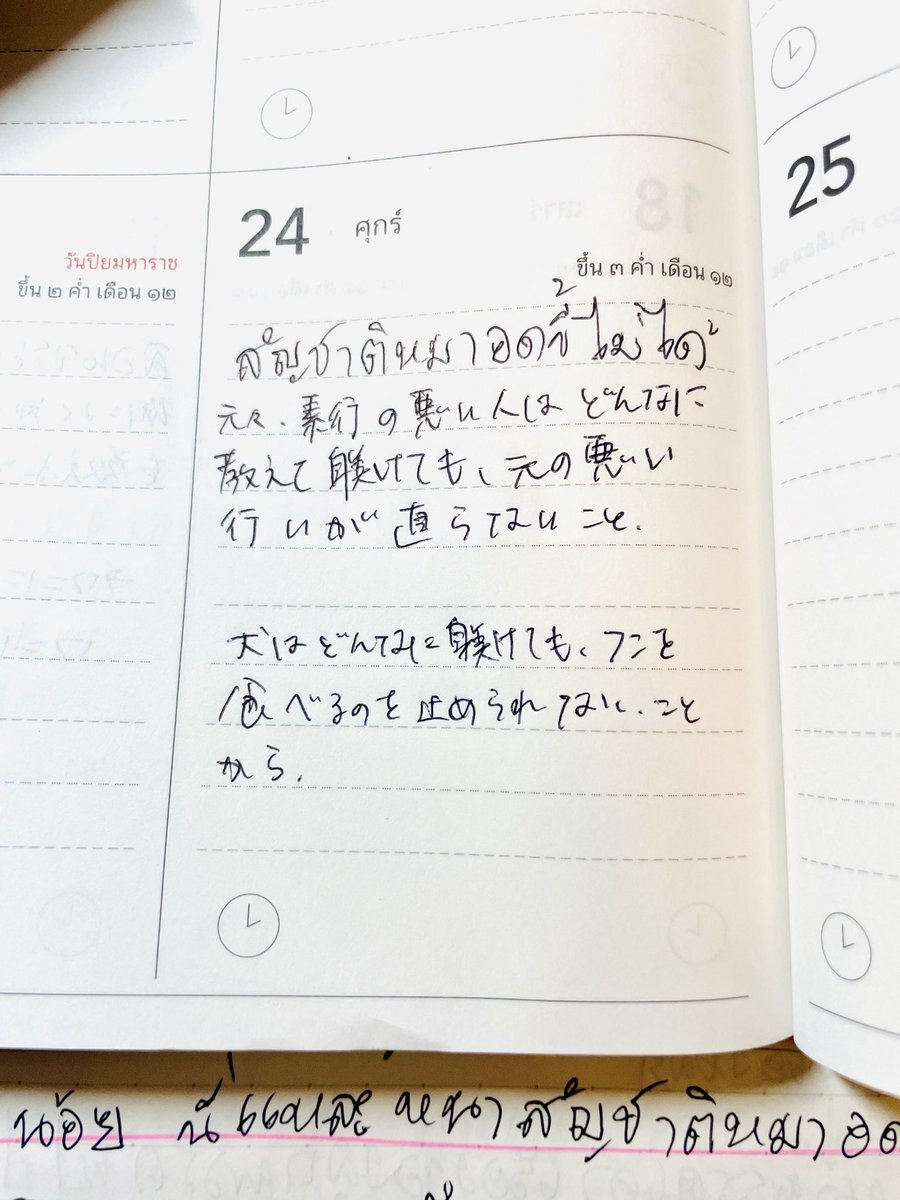 24 ศุกร์
25
วันปิยมหาราช
ขึ้น ๒ ค่ำ เดือน ๑๒
ขึ้น ๓ ค่ำ เดือน ๑๒
สัญชาติหมาอดขี้ไม่ได้
元々、素行の悪い人はどんなに
教えて躾けても、元の悪い
行いが直らないこと.
犬はどんなに躾けても、フンを
食べるのを止められない、こと
から.
น้อย นี่แหละหนาสัญชาติหมาอด